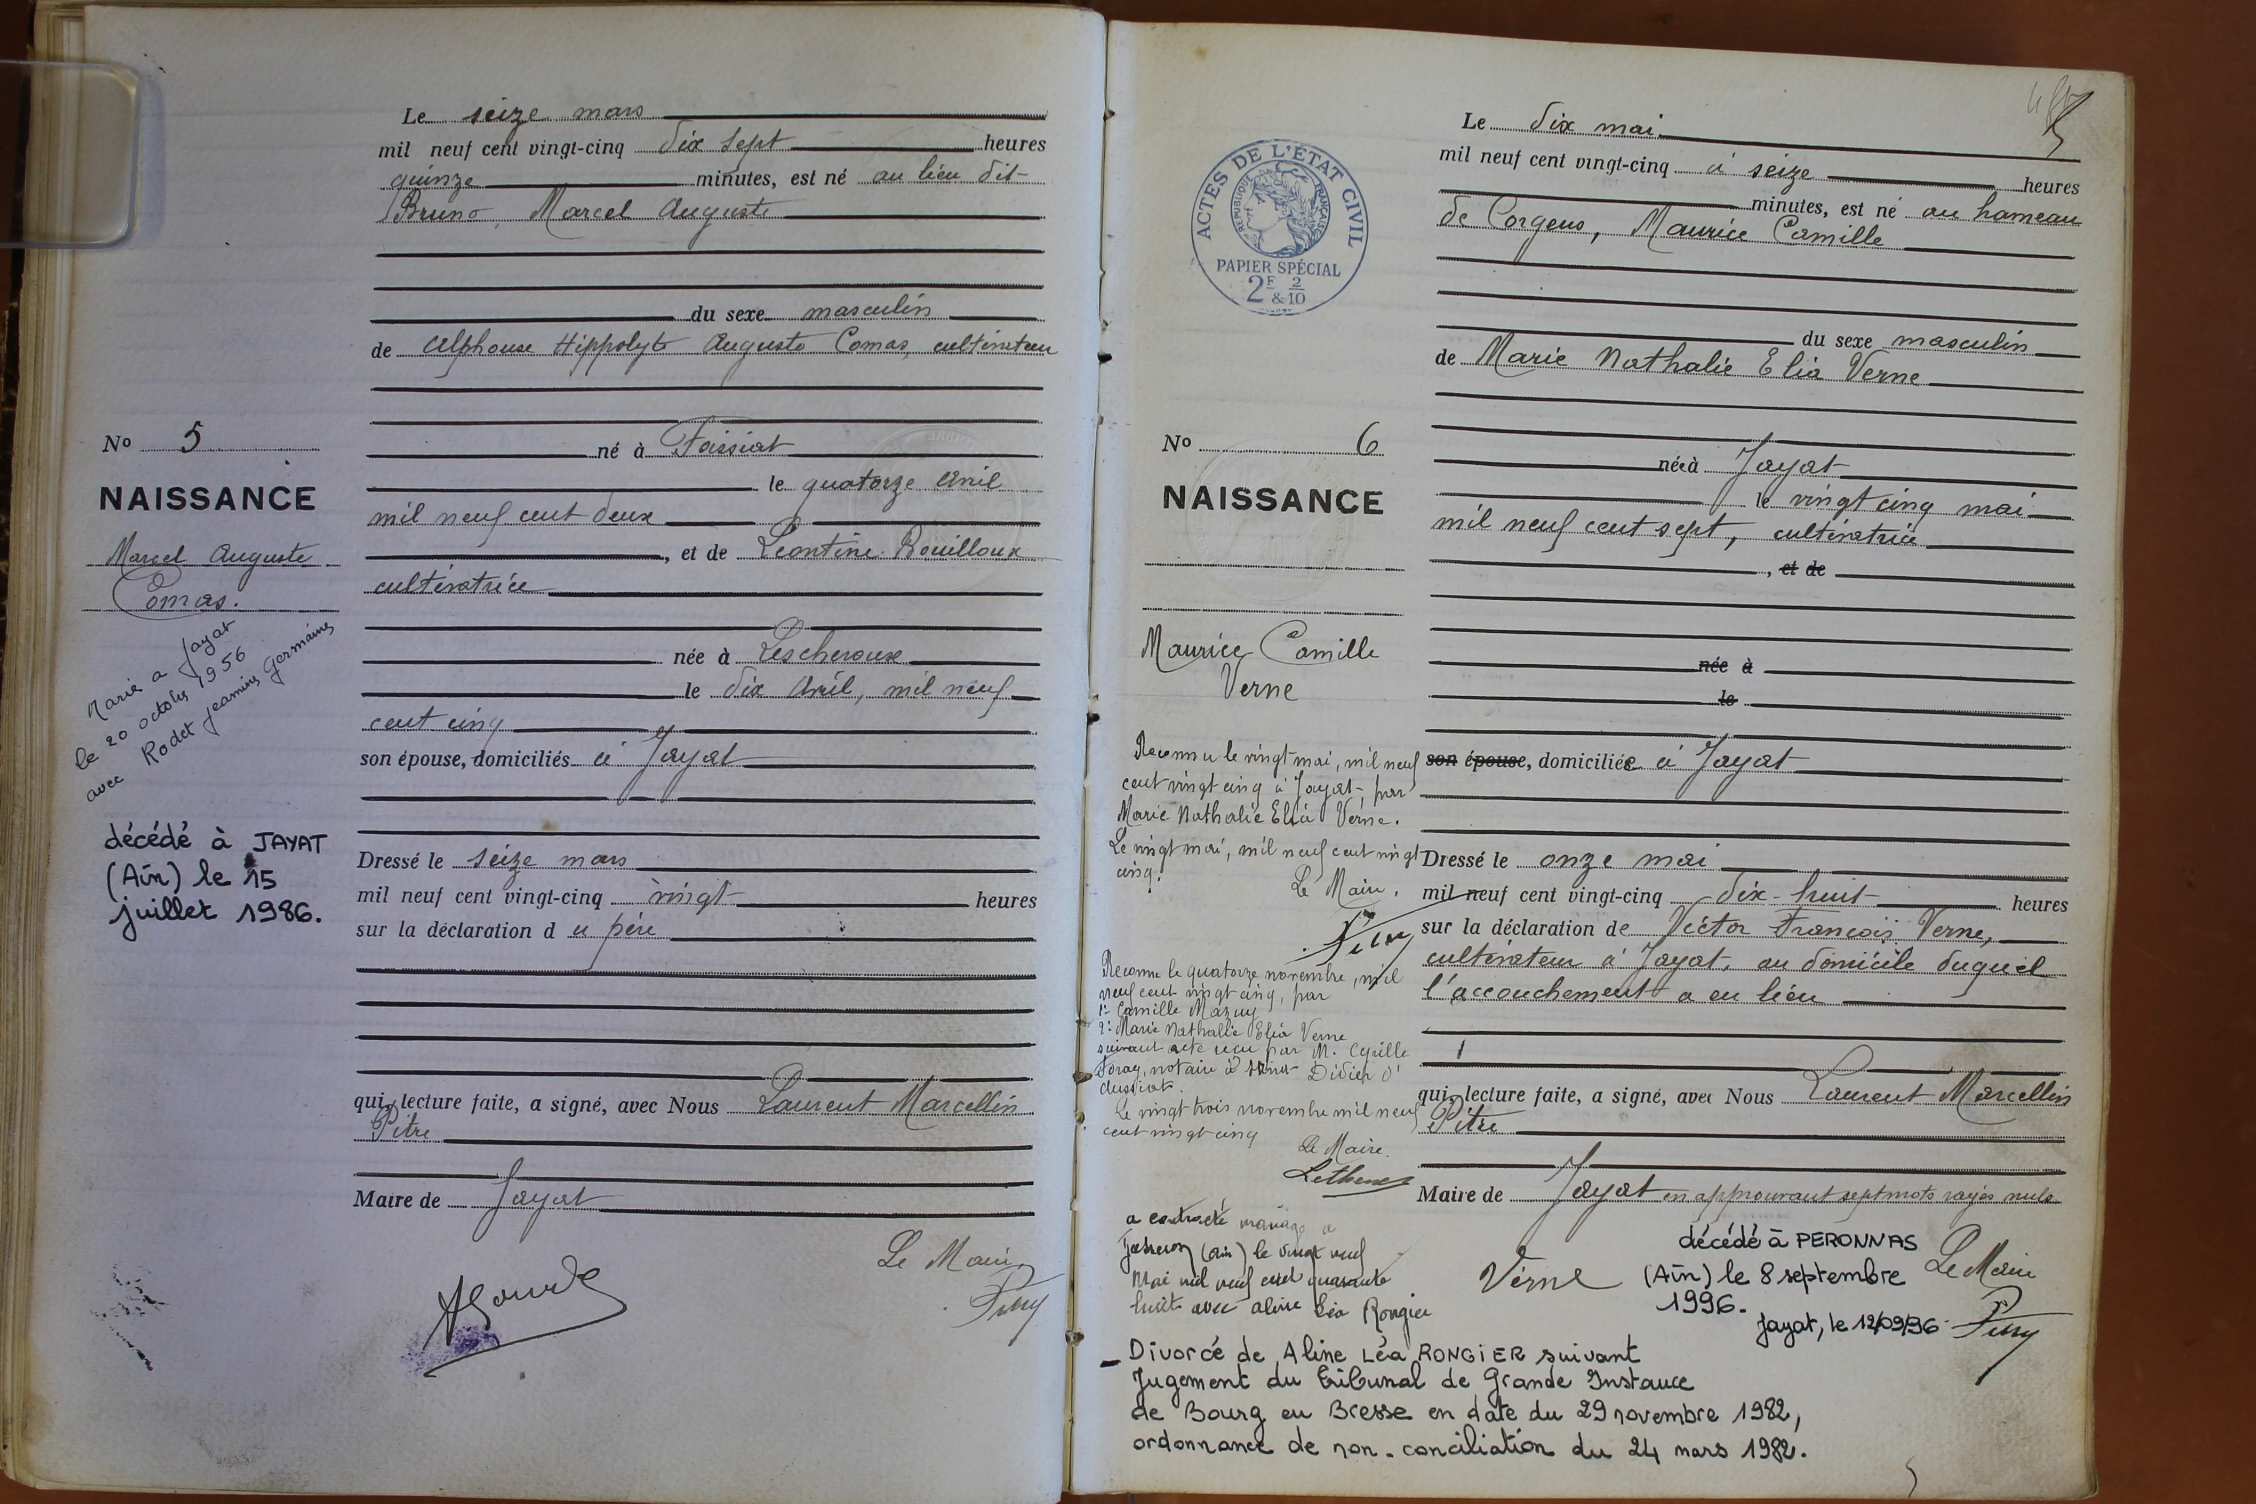 Le seize mars
mil neuf cent vingt-cinq dix sept heures
quinze minutes, est né au lieu dit
Bruno, Marcel Auguste
du sexe masculin
de Alphonse Hippolyte Auguste Comas, cultivateur
né à Foissiat
le quatorze avril
mil neuf cent deux
, et de Léontine Rouilloux
cultivatrice
née à Lescheroux
le dix avril, mil neuf
cent cinq
son épouse, domiciliés à Jayat
Dressé le seize mars
mil neuf cent vingt-cinq vingt heures
sur la déclaration du père
qui, lecture faite, a signé, avec Nous Laurent Marcellin
Pitre
Maire de Jayat
Le Maire
No 5
NAISSANCE
Marcel Auguste
Comas.
Marié à Jayat
le 20 octobre 1956
avec Rodet Jeanine Germaine
décédé à JAYAT
(Ain) le 15
juillet 1986.
Le dix mai
mil neuf cent vingt-cinq à seize heures
minutes, est né au hameau
de Corgens, Maurice Camille
du sexe masculin
de Marie Nathalie Elia Verne
née à Jayat
le vingt cinq mai
mil neuf cent sept, cultivatrice
, et de
née à
le
son épouse, domiciliée à Jayat
Dressé le onze mai
mil neuf cent vingt-cinq dix-huit heures
sur la déclaration de Victor François Verne,
cultivateur à Jayat, au domicile duquel
l'accouchement a eu lieu
qui, lecture faite, a signé, avec Nous Laurent Marcellin
Pitre
Maire de Jayat en approuvant sept mots rayés nuls
Verne
Le Maire
décédé à PERONNAS
(Ain) le 8 septembre
1996.
Jayat, le 12/09/96
ACTES DE L'ÉTAT CIVIL
RÉPUBLIQUE FRANÇAISE
PAPIER SPÉCIAL
2F & 2/10
No 6
NAISSANCE
Maurice Camille
Verne
Reconnu le vingt mai, mil neuf
cent vingt cinq à Jayat, par
Marie Nathalie Elia Verne.
Le vingt mai, mil neuf cent vingt
cinq.
Le Maire.
Reconnu le quatorze novembre, mil
neuf cent vingt cinq, par
1º Camille Mazuy
2º Marie Nathalie Elia Verne
suivant acte reçu par M. Cyrille
notaire à Saint Didier d'
Aussiat.
Le vingt trois novembre mil neuf
cent vingt cinq
Le Maire.
a contracté mariage à
(Ain) le vingt neuf
Mai mil neuf cent quarante
huit avec Aline Léa Rongier
- Divorcé de Aline Léa RONGIER suivant
Jugement du Tribunal de Grande Instance
de Bourg en Bresse en date du 29 novembre 1982,
ordonnance de non-conciliation du 24 mars 1982.